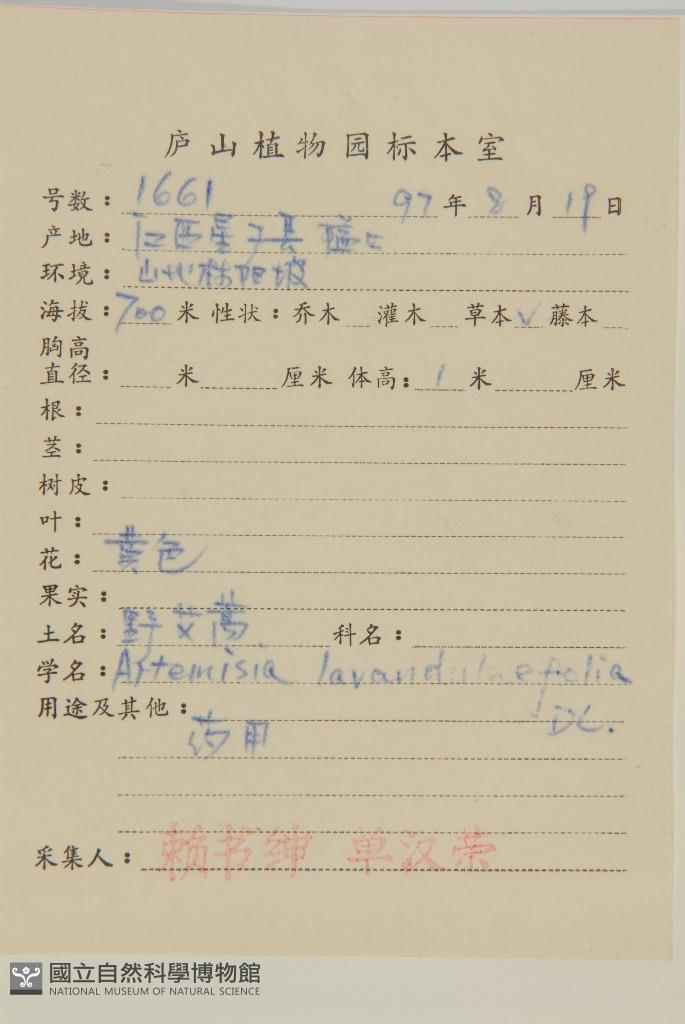 庐山植物园标本室
号数：1661 97年8月19日
产地：江西星子县
环境：山地林阳坡
海拔：700米 性状：乔木 灌木 草本√ 藤本
胸高
直径： 米 厘米 体高：1米 厘米
根：
茎：
树皮：
叶：
花：黄色
果实：
土名：野艾蒿. 科名：
学名：Artemisia lavandulaefolia
DC.
用途及其他：
药用
采集人：赖书绅 单汉荣
國立自然科學博物館
NATIONAL MUSEUM OF NATURAL SCIENCE